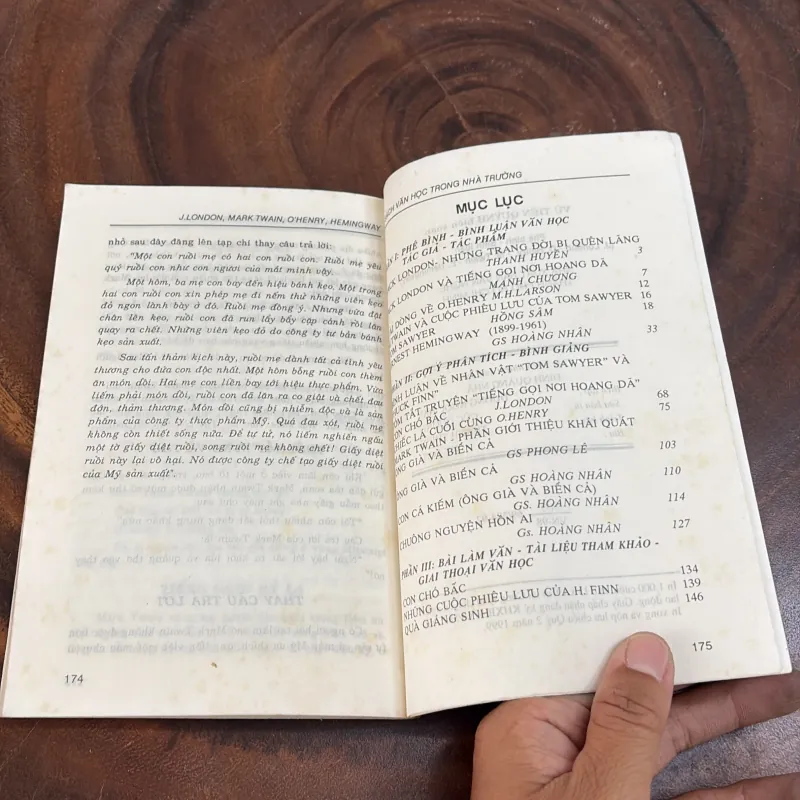 J.LONDON, MARK TWAIN, O'HENRY, HEMINGWAY
nhỏ sau đây đăng lên tạp chí thay câu trả lời:
"Một con ruồi mẹ có hai con ruồi con. Ruồi mẹ yêu
quý ruồi con như con ngươi của mắt mình vậy.
Một hôm, ba mẹ con bay đến hiệu bánh kẹo. Một trong
hai con ruồi con xin phép mẹ đi nếm thử những viên kẹo
đỏ ngon lành bày ở đó. Ruồi mẹ đồng ý. Nhưng vừa đặt
chân lên kẹo, ruồi con đã run lẩy bẩy cập cánh rồi lăn
quay ra chết. Những viên kẹo đó do công ty tư bản bánh
kẹo sản xuất.
Sau tấn thảm kịch này, ruồi mẹ dành tất cả tình yêu
thương cho đứa con độc nhất. Một hôm bỗng ruồi con thèm
ăn món dồi. Hai mẹ con liền bay tới hiệu thực phẩm. Vừa
liếm phải món dồi, ruồi con đã lăn ra co giật và chết đau
đớn, thảm thương. Món dồi cũng bị nhiễm độc và là sản
phẩm của công ty thực phẩm Mỹ. Quá đau xót, ruồi mẹ
không còn thiết sống nữa. Để tự tử, nó liếm nghiến ngấu
một tờ giấy diệt ruồi, song ruồi mẹ không chết! Giấy diệt
ruồi này lại vô hại. Nó được công ty chế tạo giấy diệt ruồi
của Mỹ sản xuất".
174
VĂN HỌC TRONG NHÀ TRƯỜNG
MỤC LỤC
PHÊ BÌNH - BÌNH LUẬN VĂN HỌC
TÁC GIẢ - TÁC PHẨM
LONDON: NHỮNG TRANG ĐỜI BỊ QUÊN LÃNG
THANH HUYỀN 3
LONDON VÀ TIẾNG GỌI NƠI HOANG DÃ
MẠNH CHƯƠNG 7
ĐÔNG VỀ O.HENRY M.H.LARSON 12
TWAIN VÀ CUỘC PHIÊU LƯU CỦA TOM SAWYER 16
SAWYER HỒNG SÂM 18
HEMINGWAY (1899-1961)
GS HOÀNG NHÂN 33
II: GỢI Ý PHÂN TÍCH - BÌNH GIẢNG
LUẬN VỀ NHÂN VẬT "TOM SAWYER" VÀ
FINN"
TẮT TRUYỆN "TIẾNG GỌI NƠI HOANG DÃ"
CHÓ BẮC J.LONDON 68
LÁ CUỐI CÙNG O.HENRY 75
MARK TWAIN : PHẦN GIỚI THIỆU KHÁI QUÁT
ÔNG GIÀ VÀ BIỂN CẢ
GS PHONG LÊ 103
ÔNG GIÀ VÀ BIỂN CẢ
GS HOÀNG NHÂN 110
CON CÁ KIẾM (ÔNG GIÀ VÀ BIỂN CẢ)
GS. HOÀNG NHÂN 114
CHUÔNG NGUYỆN HỒN AI
Gs. HOÀNG NHÂN 127
PHẦN III: BÀI LÀM VĂN - TÀI LIỆU THAM KHẢO -
GIAI THOẠI VĂN HỌC
CON CHÓ BẮC 134
NHỮNG CUỘC PHIÊU LƯU CỦA H. FINN 139
QUÀ GIÁNG SINH 146
175